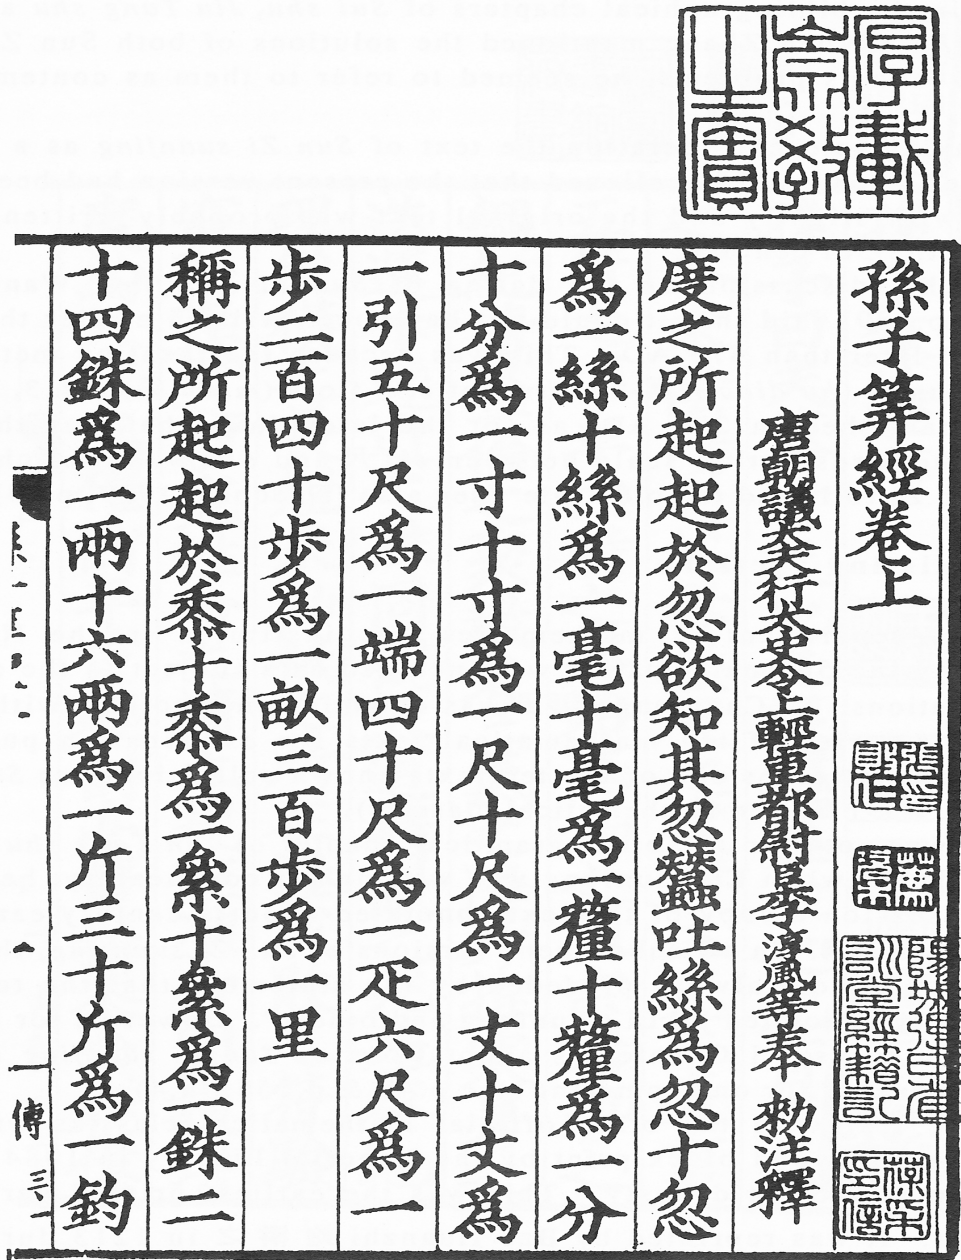 孫子筭經卷上
唐朝議大夫行太史令上輕車都尉臣李淳風等奉 勑注釋
度之所起起於忽欲知其忽蠶吐絲為忽十忽
爲一絲十絲爲一毫十毫爲一釐十釐爲一分
十分爲一寸十寸爲一尺十尺爲一丈十丈爲
一引五十尺爲一端四十尺爲一疋六尺爲一
步二百四十步爲一畝三百步爲一里
稱之所起起於黍十黍爲一絫十絫爲一銖二
十四銖爲一兩十六兩爲一斤三十斤爲一鈞